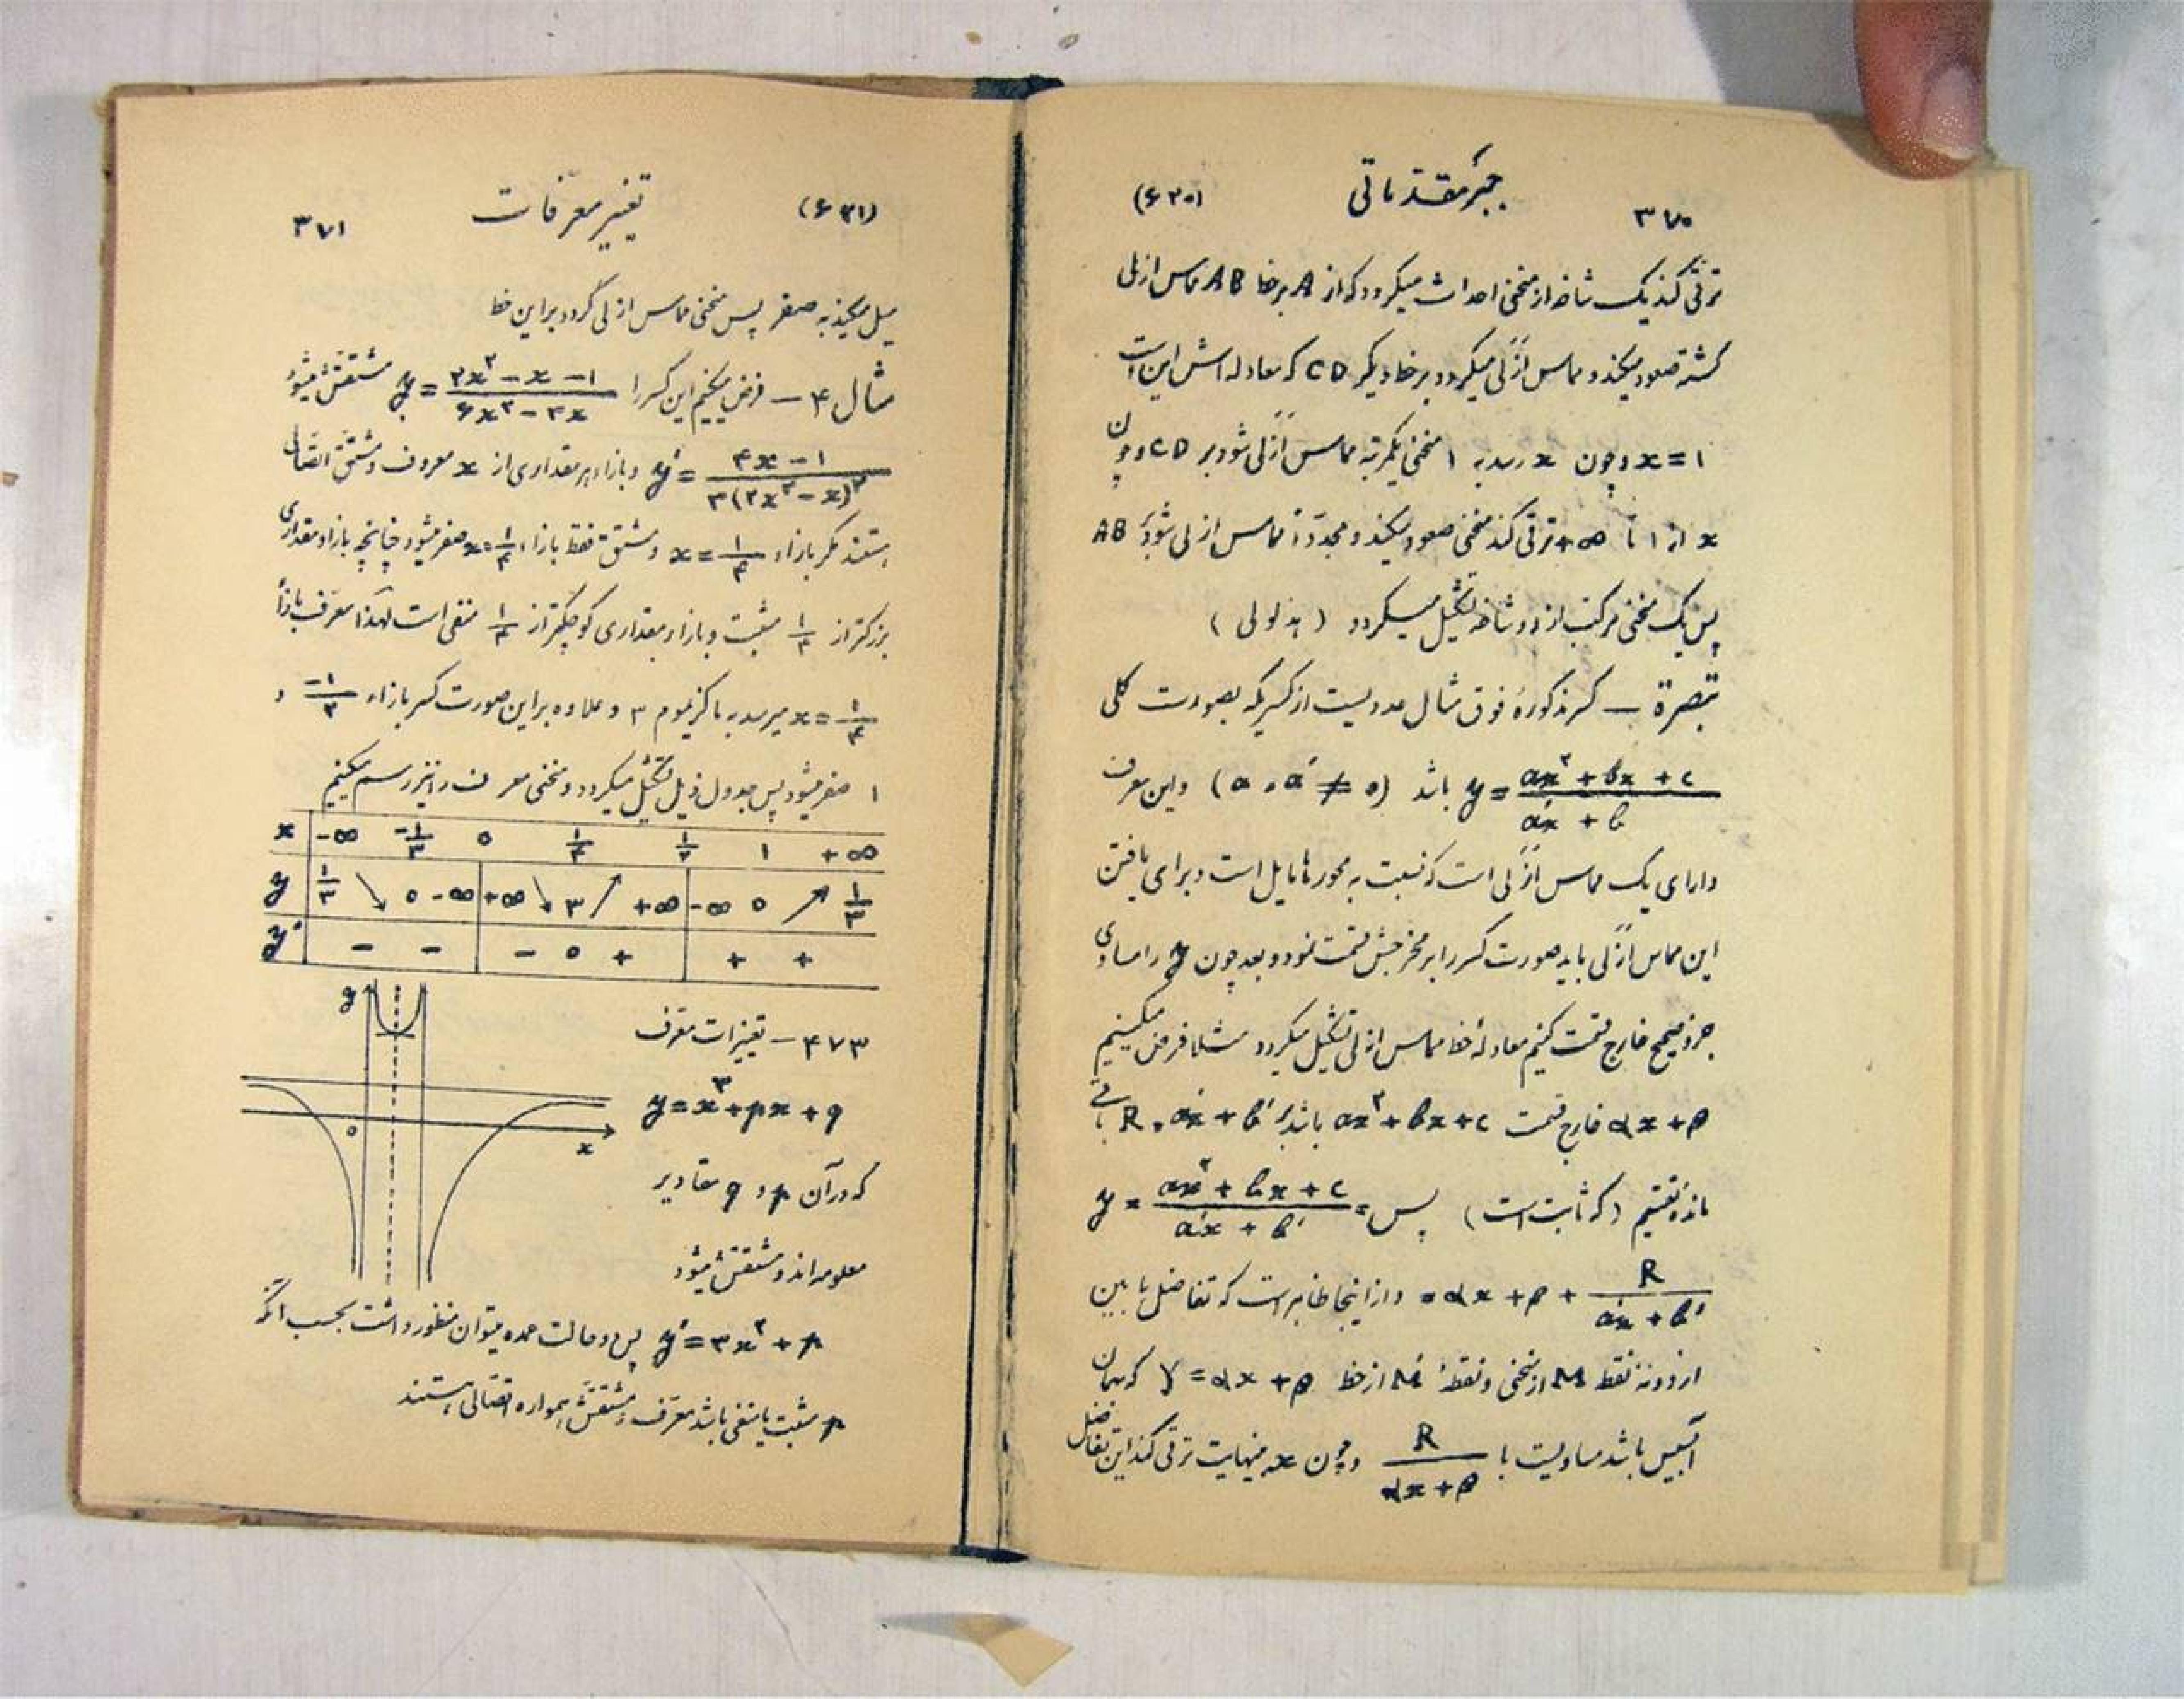 ۳۷۰ جبر مقدماتی (۶۳۰)
ترقی کند یک شاخه از منحنی احداث میگردد که از A بر خط AB مماس ازلی
گشته صعود میکند و مماس ازلی میگردد بر خط دیگر CD که معادله اش این است
x = ۱ و چون x رسد به ۱ منحنی یکمرتبه مماس ازلی شود بر CD و چون
x از ۱ تا +∞ ترقی کند منحنی صعود میکند و مجدداً مماس ازلی شود بر AB
پس یک منحنی مرکب از دو شاخه تشکیل میگردد ( هذلولی )
تبصرة — کسر مذکورهٔ فوق مثال عددیست از کسریکه بصورت کلی
y = (ax² + bx + c)/(a'x + b) باشد (a , a' ≠ ۰) و این معرف
دارای یک مماس ازلی است که نسبت به محورها مایل است و برای یافتن
این مماس ازلی باید صورت کسر را بر مخرجش قسمت نمود و بعد چون y را مساوی
جزء صحیح خارج قسمت کنیم معادلهٔ خط مماس ازلی تشکیل میگردد مثلا فرض میکنیم
αx + β خارج قسمت ax² + bx + c باشد بر a'x + b' و R باقی
ماندهٔ تقسیم (که ثابت است) پس = y = (ax² + bx + c)/(a'x + b')
= αx + β + R/(a'x + b') و از اینجا ظاهر است که تفاضل مابین
اردونهٔ نقطهٔ M از منحنی و نقطهٔ M' از خط Y = αx + β که همان
آبسیس باشد مساویست با R/(αx + β) و چون x بینهایت ترقی کند این تفاضل
(۶۳۱) تغییر معرفات ۳۷۱
میل میکند به صفر پس منحنی مماس ازلی گردد بر این خط
مثال ۴ — فرض میکنیم این کسر را y = (۲x² − x − ۱)/(۶x² − ۳x) مشتقش میشود
y' = (۴x − ۱)/۳(۲x² − x)² و بازاء هر مقداری از x معرف و مشتق اتصالی
هستند مگر بازاء x = ۱/۲ و مشتق فقط بازاء x = ۱/۴ صفر میشود چنانچه بازاء مقداری
بزرگتر از ۱/۴ مثبت و بازاء مقداری کوچکتر از ۱/۴ منفی است لهذا معرف بازأ
x = ۱/۴ میرسد به ماکزیموم ۳ و علاوه بر این صورت کسر بازاء −۱/۲ و
۱ صفر میشود پس جدول ذیل تشکیل میگردد و منحنی معرف را نیز رسم میکنیم
x −∞ −۱/۲ ۰ ۱/۴ ۱/۲ ۱ +∞
y ۱/۳ ↘ ۰ −∞ +∞ ↘ ۳ ↗ +∞ −∞ ۰ ↗ ۱/۳
y' − − − ۰ + + +
y
۰
x
۴۷۳ — تغییرات معرف
y = x³ + px + q
که در آن p و q مقادیر
معلومه اند و مشتقش میشود
y' = ۳x² + p پس دو حالت عمده میتوان منظور داشت بحسب آنکه
p مثبت یا منفی باشد معرف و مشتقش همواره اتصالی هستند